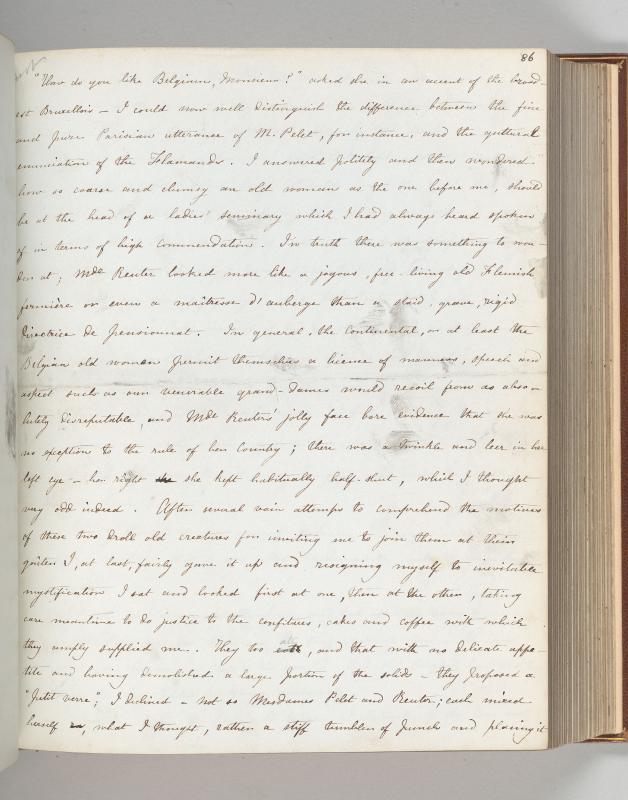 86
"How do you like Belgium, Monsieur?" asked she in an accent of the broad-
est Bruxellois – I could now well distinguish the difference between the fine
and pure Parisian utterance of M. Pelet, for instance, and the guttural
enunciation of the Flamands. I answered politely and then wondered
how so coarse and clumsy an old woman as the one before me, should
be at the head of a ladies' seminary which I had always heard spoken
of in terms of high commendation. In truth there was something to won-
der at; Mde Reuter looked more like a joyous, free-living old Flemish
fermière or even a maîtresse d'auberge than a staid, grave, rigid
directrice de pensionnat. In general, the continental, or at least the
Belgian old women permit themselves a licence of manners, speech and
aspect such as our venerable grand-dames would recoil from as abso-
lutely disreputable, and Mde Reuters' jolly face bore evidence that she was
no exception to the rule of her Country; there was a twinkle and leer in her
left eye – her right she kept habitually half-shut, which I thought
very odd indeed. After several vain attempts to comprehend the motives
of these two droll old creatures for inviting me to join them at their
goûter I, at last, fairly gave it up and resigning myself to inevitable
mystification I sat and looked first at one, then at the other, taking
care meantime to do justice to the confitures, cakes and coffee with which
they amply supplied me. They too ate, and that with no delicate appe-
tite and having demolished a large portion of the solids – they proposed a
"petit verre"; I declined – not so Mesdames Pelet and Reuter; each mixed
herself, what I thought, rather a stiff tumbler of punch and placing it